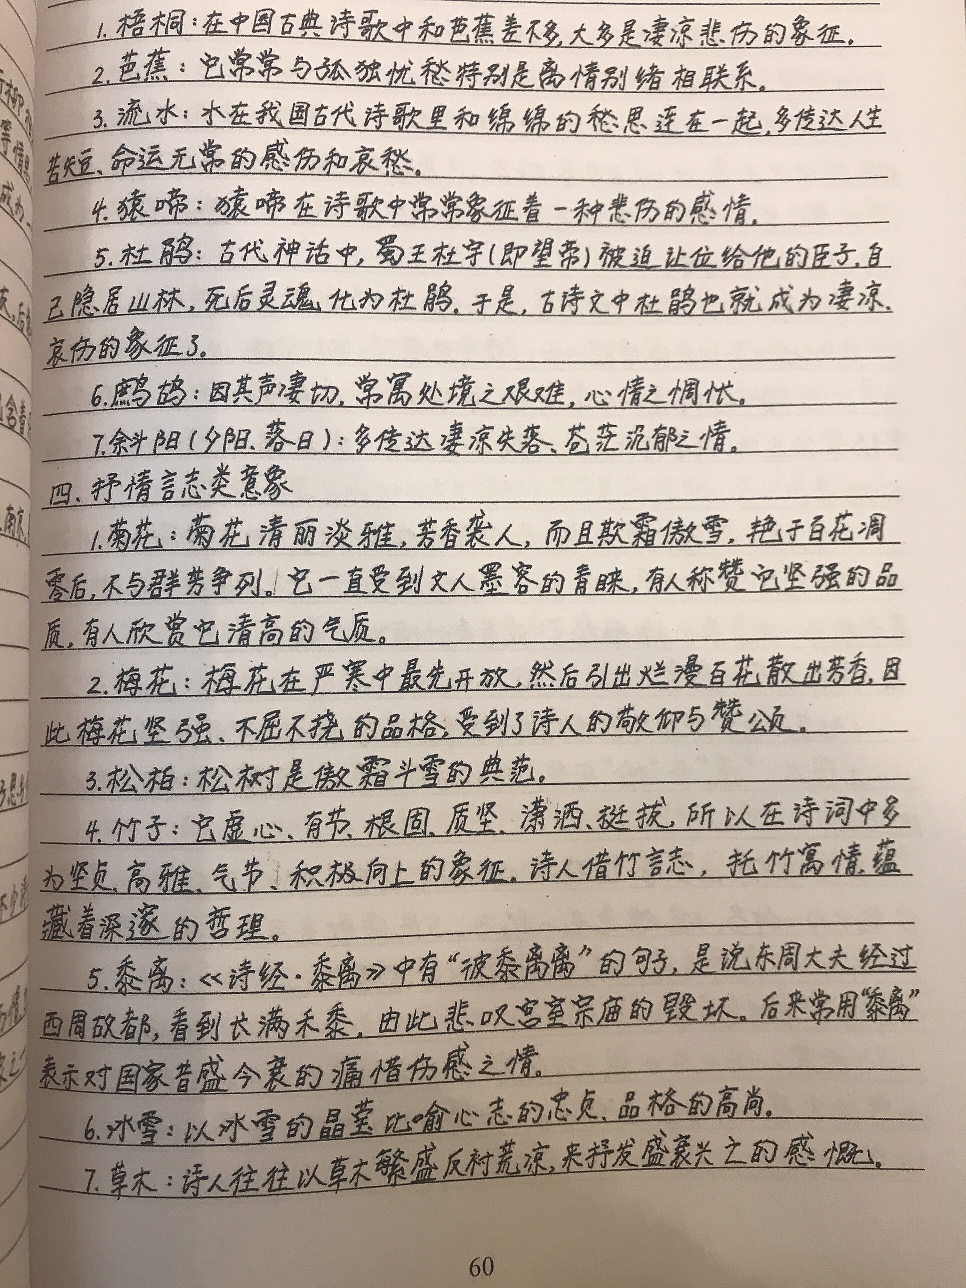 1.梧桐：在中国古典诗歌中和芭蕉差不多，大多是凄凉悲伤的象征。
2.芭蕉：它常常与孤独忧愁特别是离情别绪相联系。
3.流水：水在我国古代诗歌里和绵绵的愁思连在一起，多传达人生
苦短、命运无常的感伤和哀愁。
4.猿啼：猿啼在诗歌中常常象征着一种悲伤的感情。
5.杜鹃：古代神话中，蜀王杜宇(即望帝)被迫让位给他的臣子，自
己隐居山林，死后灵魂化为杜鹃。于是，古诗文中杜鹃也就成为凄凉、
哀伤的象征了。
6.鹧鸪：因其声凄切，常寓处境之艰难，心情之惆怅。
7.斜阳(夕阳、落日)：多传达凄凉失落、苍茫沉郁之情。
四、抒情言志类意象
1.菊花：菊花清丽淡雅，芳香袭人，而且欺霜傲雪，艳于百花凋
零后，不与群芳争列。它一直受到文人墨客的青睐，有人称赞它坚强的品
质，有人欣赏它清高的气质。
2.梅花：梅花在严寒中最先开放，然后引出烂漫百花散出芳香，因
此梅花坚强、不屈不挠的品格，受到了诗人的敬仰与赞颂。
3.松柏：松树是傲霜斗雪的典范。
4.竹子：它虚心、有节、根固、质坚、潇洒、挺拔，所以在诗词中多
为坚贞、高雅、气节、积极向上的象征。诗人借竹言志，托竹寓情，蕴
藏着深邃的哲理。
5.黍离：《诗经·黍离》中有“彼黍离离”的句子，是说东周大夫经过
西周故都，看到长满禾黍，由此悲叹宫室宗庙的毁坏。后来常用“黍离”
表示对国家昔盛今衰的痛惜伤感之情。
6.冰雪：以冰雪的晶莹比喻心志的忠贞、品格的高尚。
7.草木：诗人往往以草木繁盛反衬荒凉，来抒发盛衰兴亡的感慨。
60